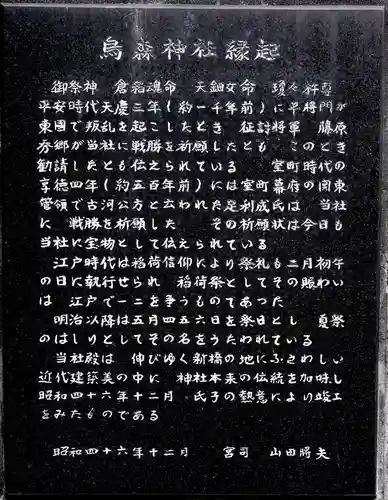 烏森神社縁起
御祭神 倉稲魂命 天鈿女命 瓊々杵尊
平安時代天慶三年(約一千年前)に平将門が
東國で叛乱を起こしたとき 征討将軍 藤原
秀郷が当社に戦勝を祈願したとも このとき
勧請したとも伝えられている 室町時代の
享徳四年(約五百年前)には室町幕府の関東
管領で古河公方と云われた足利成氏は 当社
に 戦勝を祈願した その祈願状は今日も
当社に宝物として伝えられている
江戸時代は稲荷信仰により祭礼も二月初午
の日に執行せられ 稲荷祭としてその賑わい
は 江戸で一二を争うものであった
明治以降は五月四五六日を祭日とし 夏祭
のはしりとしてその名をうたわれている
当社殿は 伸びゆく新橋の地にふさわしい
近代建築美の中に 神社本来の伝統を加味し
昭和四十六年十二月 氏子の熱意により竣工
をみたものである
昭和四十六年十二月 宮司 山田将夫